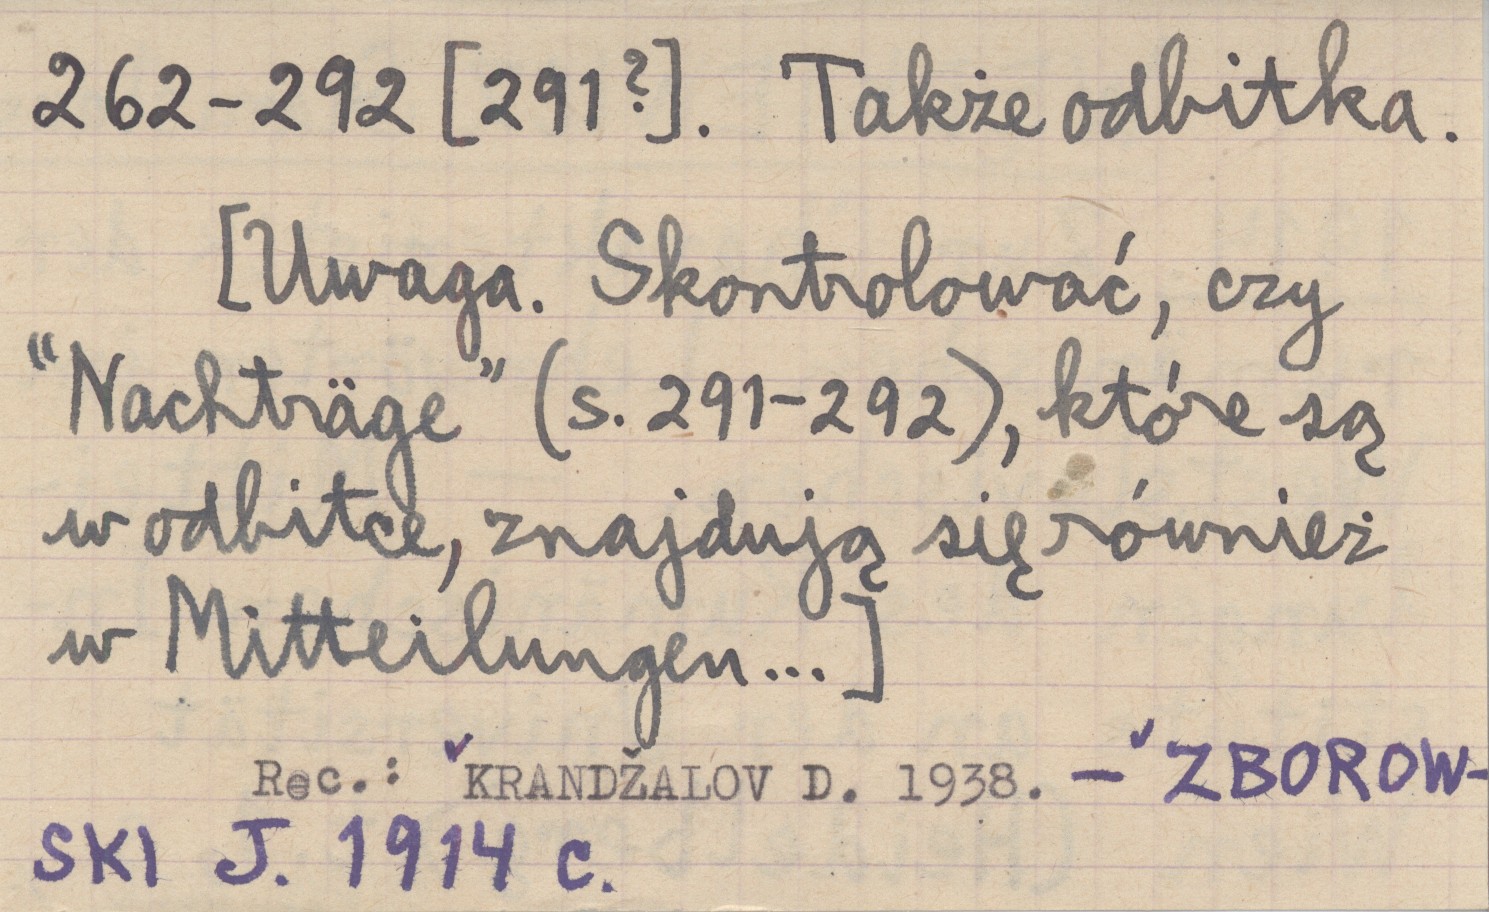 262-292 [291?]. Także odbitka.
[Uwaga. Skontrolować, czy
“Nachträge” (s. 291-292), które są
w odbitce, znajdują się również
w Mitteilungen...]
Rec.: ✓KRANDŽALOV D. 1938. – ✓ZBOROW-
SKI J. 1914 c.